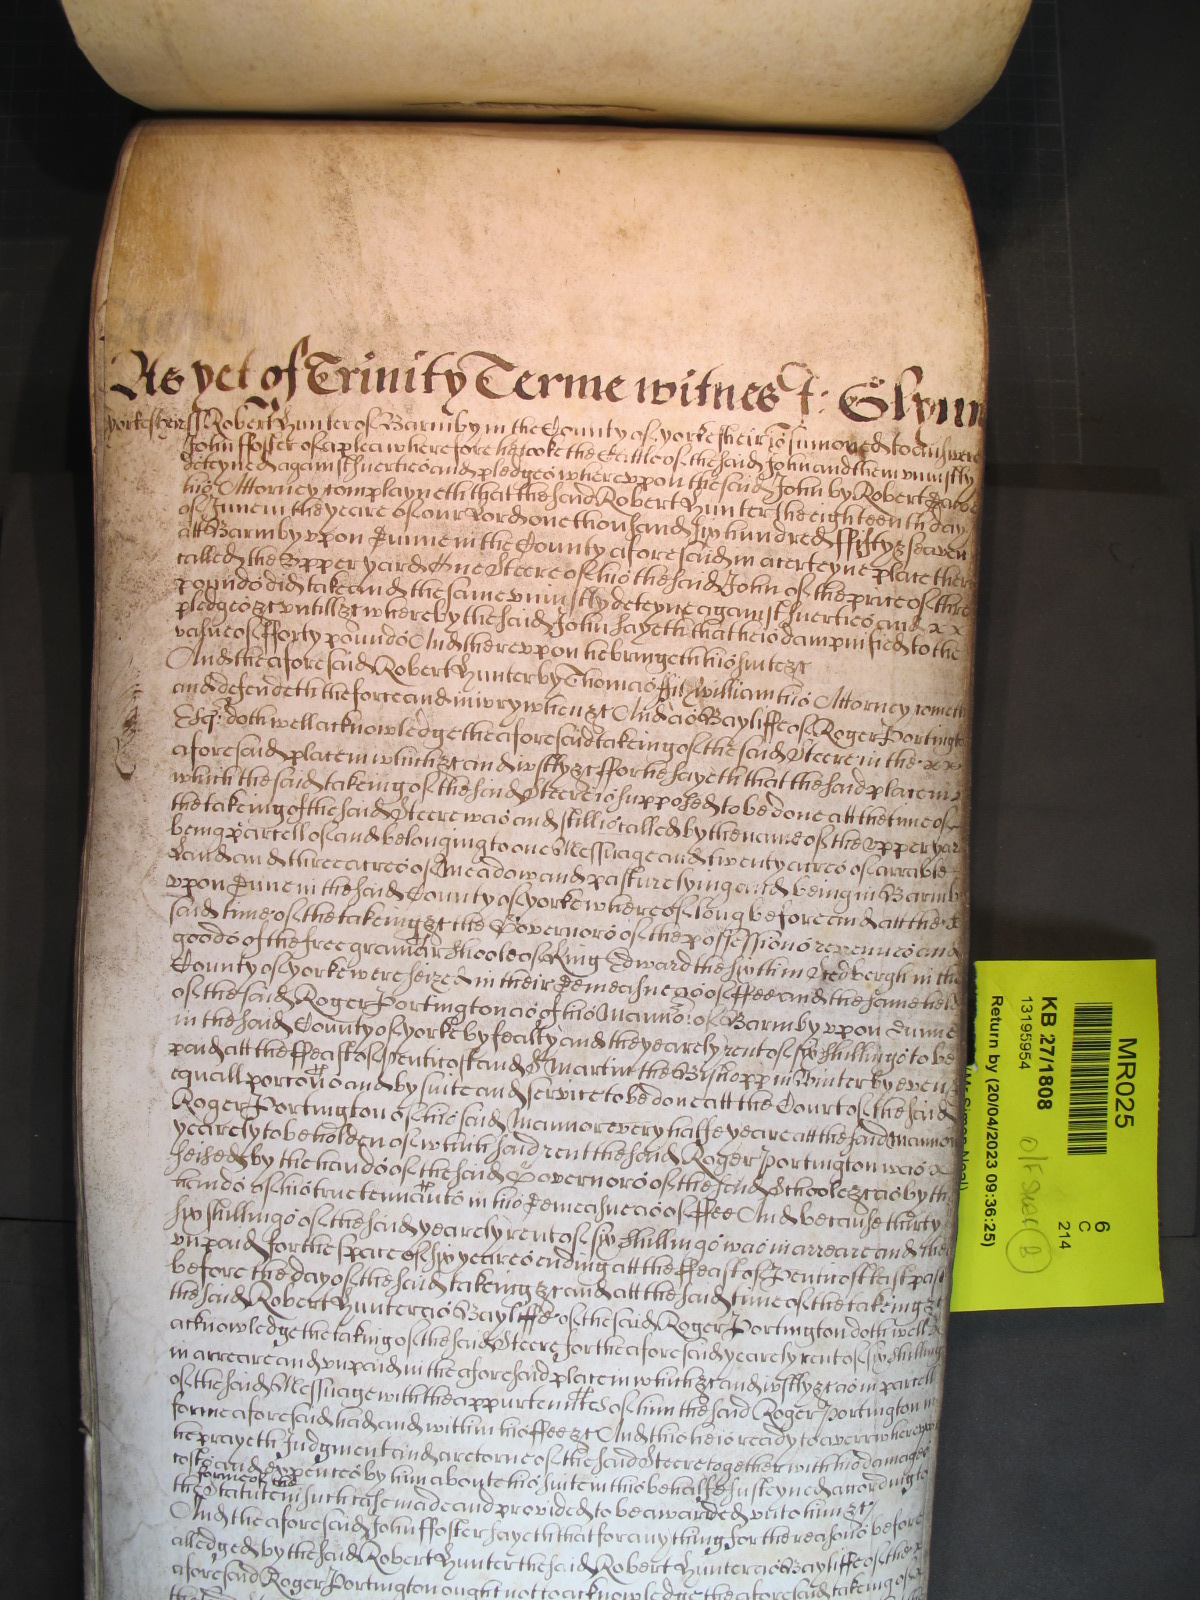 As yet of Trinity Terme witnes J: Glynn
Yorkeshire ss Robert Hunter of Barmby in the County of Yorke sheir is sumoned to answere
John Foster of a plea wherefore he tooke the Cattle of the said John and them uniustly
deteyned against suerties and pledges whereupon the said John by Robert
his Attorney complayneth that the said Robert Hunter the eighteenth day
of June in the yeare of our Lord one thousand six hundred ffifty & seaven
att Barmby upon Dunne in the County aforesaid in a certeyne place there
called the Upper yard One Steere of his the said John of the price of three
pounds did take and the same uniustly deteyne against suerties and x x
pledges &c untill &c whereby the said John sayeth that he is dampnified to the
value of fforty pounds And thereupon he bringeth his suite &c
And the aforesaid Robert Hunter by Thomas ffitzwilliam his Attorney cometh
and defendeth the force and iniury when &c And as Bayliffe of Roger Portington
Esqr: doth well acknowledge the aforesaid takeing of the said Steere in the x x
aforesaid place in which &c and iustly &c ffor he sayeth that the said place in
which the said takeing of the said Steere is supposed to be done att the time of
the takeing of the said Steere was and still is called by the name of the Upper yard
being parcell of and belonging to one Messuage and twenty acres of arrable
Land and three acres of meadow and pasture lying and being in Barmby
upon Dunne in the said County of Yorke whereof long before and att the
said time of the takeing &c the Governors of the possessions revenues and
goods of the free gramar Schoole of King Edward the sixth in Sedbergh in the
County of Yorke were seized in their Demeasne as of ffee and the same held
of the said Roger Portington as of his Mannor of Barmby upon Dunne
in the said County of Yorke by fealty and the yearely rent of six shillings to be
paid att the ffeast of Penticost and St Martin the Bishopp in Winter by even
equall porcons and by suite and service to be done att the Court of the said
Roger Portington of his said Mannor every halfe yeare att the said Mannor
yearely to be holden of which said rent the said Roger Portington was x
seised by the hands of the said Governors of the said Schoole &c as by the
hands of his true tennants in his Demeasne as of ffee And because thirty
six shillings of the said yearely rent of six shillings was in arreare and
unpaid for the space of six yeares ending att the ffeast of Penticost last past
before the day of the said takeing &c and att the said time of the takeing &c
the said Robert Hunter as Bayliffe of the said Roger Portington doth well
acknowledge the takeing of the said Steere for the aforesaid yearely rent of six shillings
in arreare and unpaid in the aforesaid place in which &c and iustly &c as in parcell
of the said Messuage with the appurtennces of him the said Roger Portington in
forme aforesaid had and within his ffee &c And this he is ready to averr whereupon
he prayeth Judgment and a retorne of the said Steere together with his damages
costs and expences by him aboute his suite in this behalfe susteyned according to
forme of the
the Statute in such case made and provided to be awarded unto him &c
And the aforesaid John ffoster sayeth that for any thing for the reasons before
alledged by the said Robert Hunter the said Robert Hunter as Bayliffe of the
aforesaid Roger Portington ought not to acknowledge the aforesaid takeing of
MR025
6
C
214
KB 27/1808
13195954
Return by (20/04/2023 09:36:25)